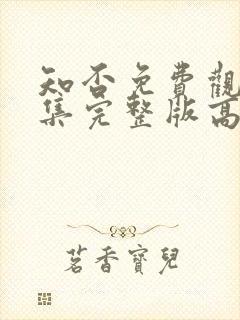 知否免費觀
集完整版高
茗香寶兒